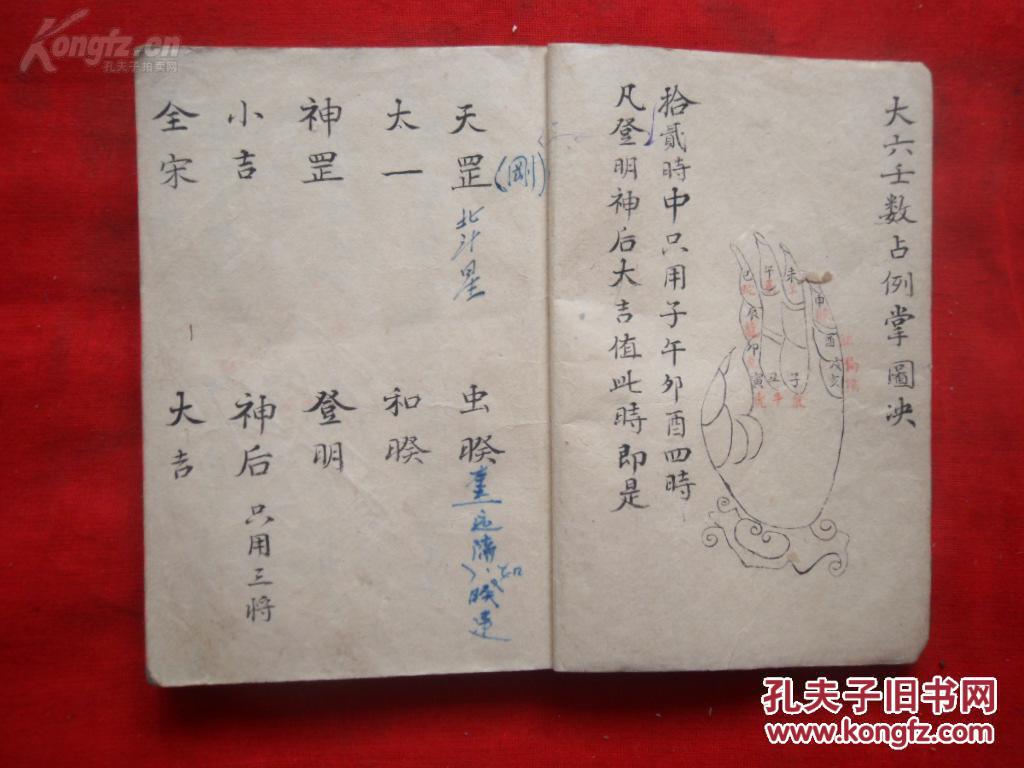 大六壬数占例掌圖决
巳
午
未
申
辰
酉
卯
戌亥
寅
丑
子
拾貳時中只用子午卯酉四時
凡登明神后大吉值此時即是
天罡(剛)
北斗星
太一
神罡
小吉
全宋
虫睽
和睽
登明
神后 只用三将
大吉
Kongfz.cn
孔夫子拍卖网
孔夫子旧书网
www.kongfz.com